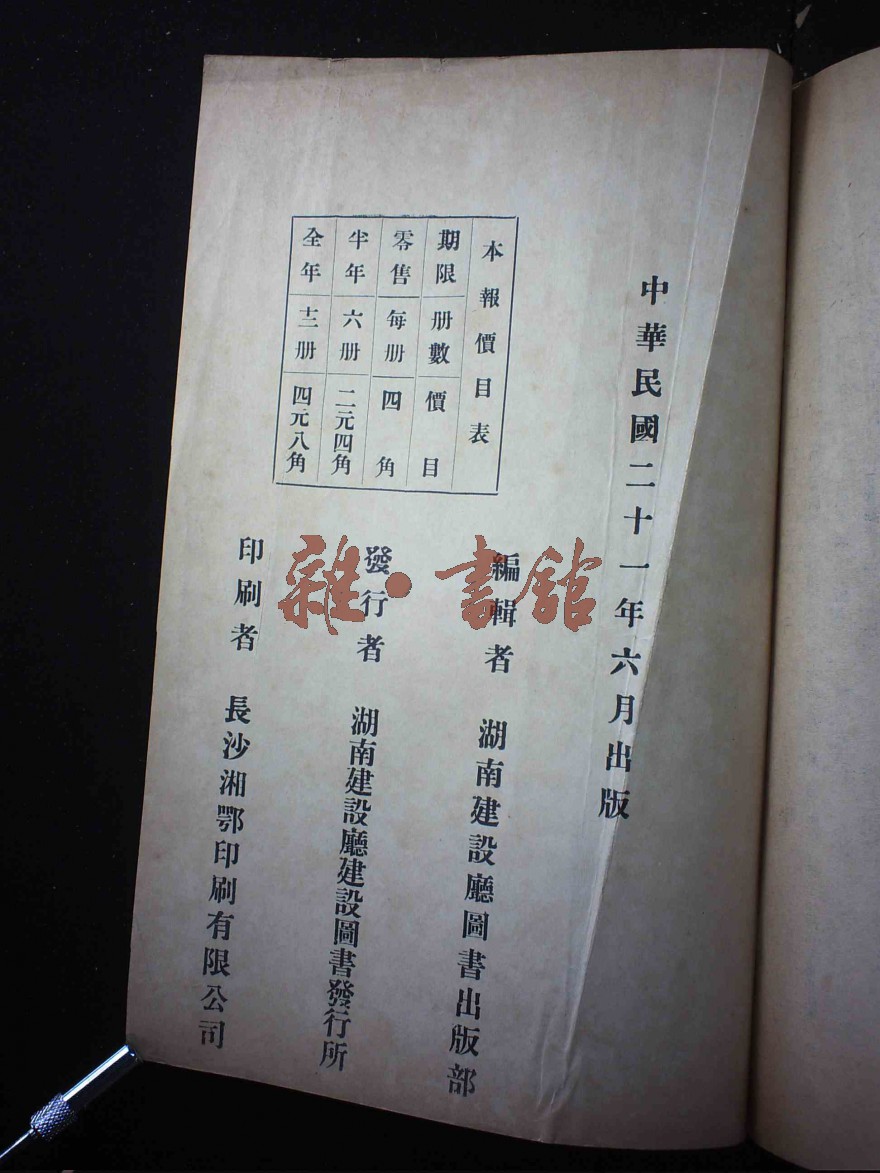 中華民國二十一年六月出版
本報價目表
期限 册數 價目
零售 每册 四角
半年 六册 二元四角
全年 十二册 四元八角
編輯者 湖南建設廳圖書出版部
發行者 湖南建設廳建設圖書發行所
印刷者 長沙湘鄂印刷有限公司
雜·書館